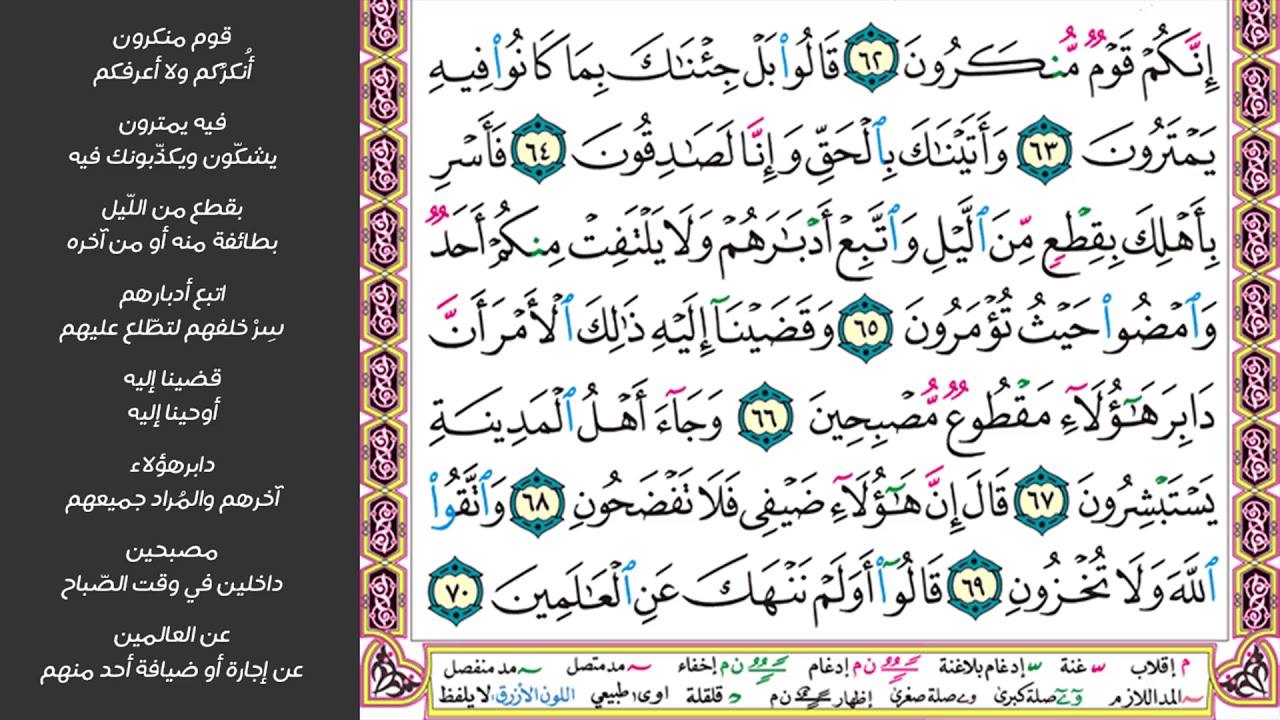 إِنَّكُمْ قَوْمٌ مُّنكَرُونَ ٦٢ قَالُوا۟ بَلْ جِئْنَٰكَ بِمَا كَانُوا۟ فِيهِ
يَمْتَرُونَ ٦٣ وَأَتَيْنَٰكَ بِٱلْحَقِّ وَإِنَّا لَصَٰدِقُونَ ٦٤ فَأَسْرِ
بِأَهْلِكَ بِقِطْعٍ مِّنَ ٱلَّيْلِ وَٱتَّبِعْ أَدْبَٰرَهُمْ وَلَا يَلْتَفِتْ مِنكُمْ أَحَدٌ
وَٱمْضُوا۟ حَيْثُ تُؤْمَرُونَ ٦٥ وَقَضَيْنَآ إِلَيْهِ ذَٰلِكَ ٱلْأَمْرَ أَنَّ
دَابِرَ هَٰٓؤُلَآءِ مَقْطُوعٌ مُّصْبِحِينَ ٦٦ وَجَآءَ أَهْلُ ٱلْمَدِينَةِ
يَسْتَبْشِرُونَ ٦٧ قَالَ إِنَّ هَٰٓؤُلَآءِ ضَيْفِى فَلَا تَفْضَحُونِ ٦٨ وَٱتَّقُوا۟
ٱللَّهَ وَلَا تُخْزُونِ ٦٩ قَالُوٓا۟ أَوَلَمْ نَنْهَكَ عَنِ ٱلْعَٰلَمِينَ ٧٠
م إقلاب ـّ غنة ـّ إدغام بلاغنة ن م إدغام ن م إخفاء ~ مد متصل ~ مد منفصل
~ المد اللازم صلة كبرى و ے صلة صغرى إظهار ن م د قلقلة اوى ا طبيعي اللون الأزرق، لا يلفظ
قوم منكرون
أُنكرُكم ولا أعرفكم
فيه يمترون
يشكّون ويكذّبونك فيه
بقطع من اللّيل
بطائفة منه أو من آخره
اتبع أدبارهم
سِرْ خلفهم لتطّلع عليهم
قضينا إليه
أوحينا إليه
دابرهؤلاء
آخرهم والمُراد جميعهم
مصبحين
داخلين في وقت الصّباح
عن العالمين
عن إجارة أو ضيافة أحد منهم